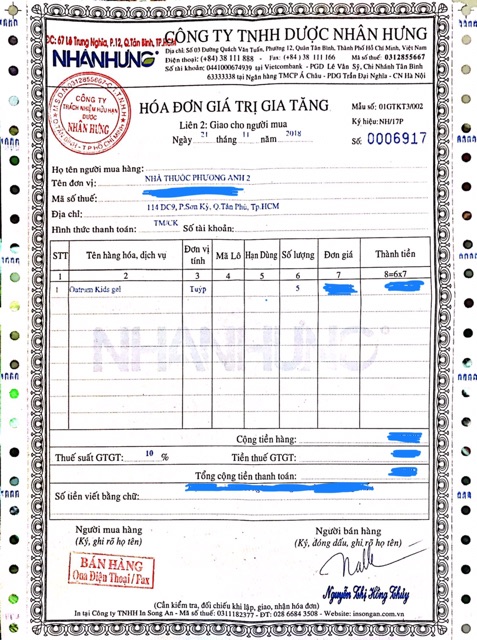 ĐC: 67 Lê Trung Nghĩa, P.12, Q.Tân Bình, TP.HCM
NHANHUNG
CÔNG TY TNHH DƯỢC NHÂN HƯNG
Địa chỉ: Số 03 Đường Quách Văn Tuấn, Phường 12, Quận Tân Bình, Thành Phố Hồ Chí Minh, Việt Nam
Điện thoại: (+84) 38 111 888 - Fax: (+84) 38 111 777 Mã số thuế: 0312855667
Số tài khoản: 0441000674939 tại Vietcombank - PGD Lê Văn Sỹ, Chi Nhánh Tân Bình
63333338 tại Ngân hàng TMCP Á Châu - PDG Trần Đại Nghĩa - CN Hà Nội
M.S.D.N: 0312855667-C.T.T.N.H.H
CÔNG TY
TRÁCH NHIỆM HỮU HẠN
DƯỢC
NHÂN HƯNG
Q. TÂN BÌNH - TP HỒ CHÍ MINH
HÓA ĐƠN GIÁ TRỊ GIA TĂNG
Liên 2: Giao cho người mua
Ngày 21 tháng 11 năm 2018
Mẫu số: 01GTKT3/002
Ký hiệu: NH/17P
Số: 0006917
Họ tên người mua hàng:
Tên đơn vị: NHÀ THUỐC PHƯƠNG ANH 2
Mã số thuế:
Địa chỉ: 114 DC9, P.Sơn Kỳ, Q.Tân Phú, Tp.HCM
Hình thức thanh toán: TM/CK Số tài khoản:
STT Tên hàng hóa, dịch vụ Đơn vị tính Mã Lô Hạn Dùng Số lượng Đơn giá Thành tiền
1 2 3 4 5 6 7 8=6x7
1 Oatrum Kids gel Tuýp 5
NHANHUNG
Cộng tiền hàng:
Thuế suất GTGT: 10 % Tiền thuế GTGT:
Tổng cộng tiền thanh toán:
Số tiền viết bằng chữ:
Người mua hàng Người bán hàng
(Ký, ghi rõ họ tên) (Ký, đóng dấu, ghi rõ họ tên)
BÁN HÀNG
Qua Điện Thoại / Fax
Nguyễn Thị Hồng Thủy
(Cần kiểm tra, đối chiếu khi lập, giao, nhận hóa đơn)
In tại Công ty TNHH In Song An - Mã số thuế: 0311182377 - ĐT: 028 6684 3508 - Website: insongan.com.vn